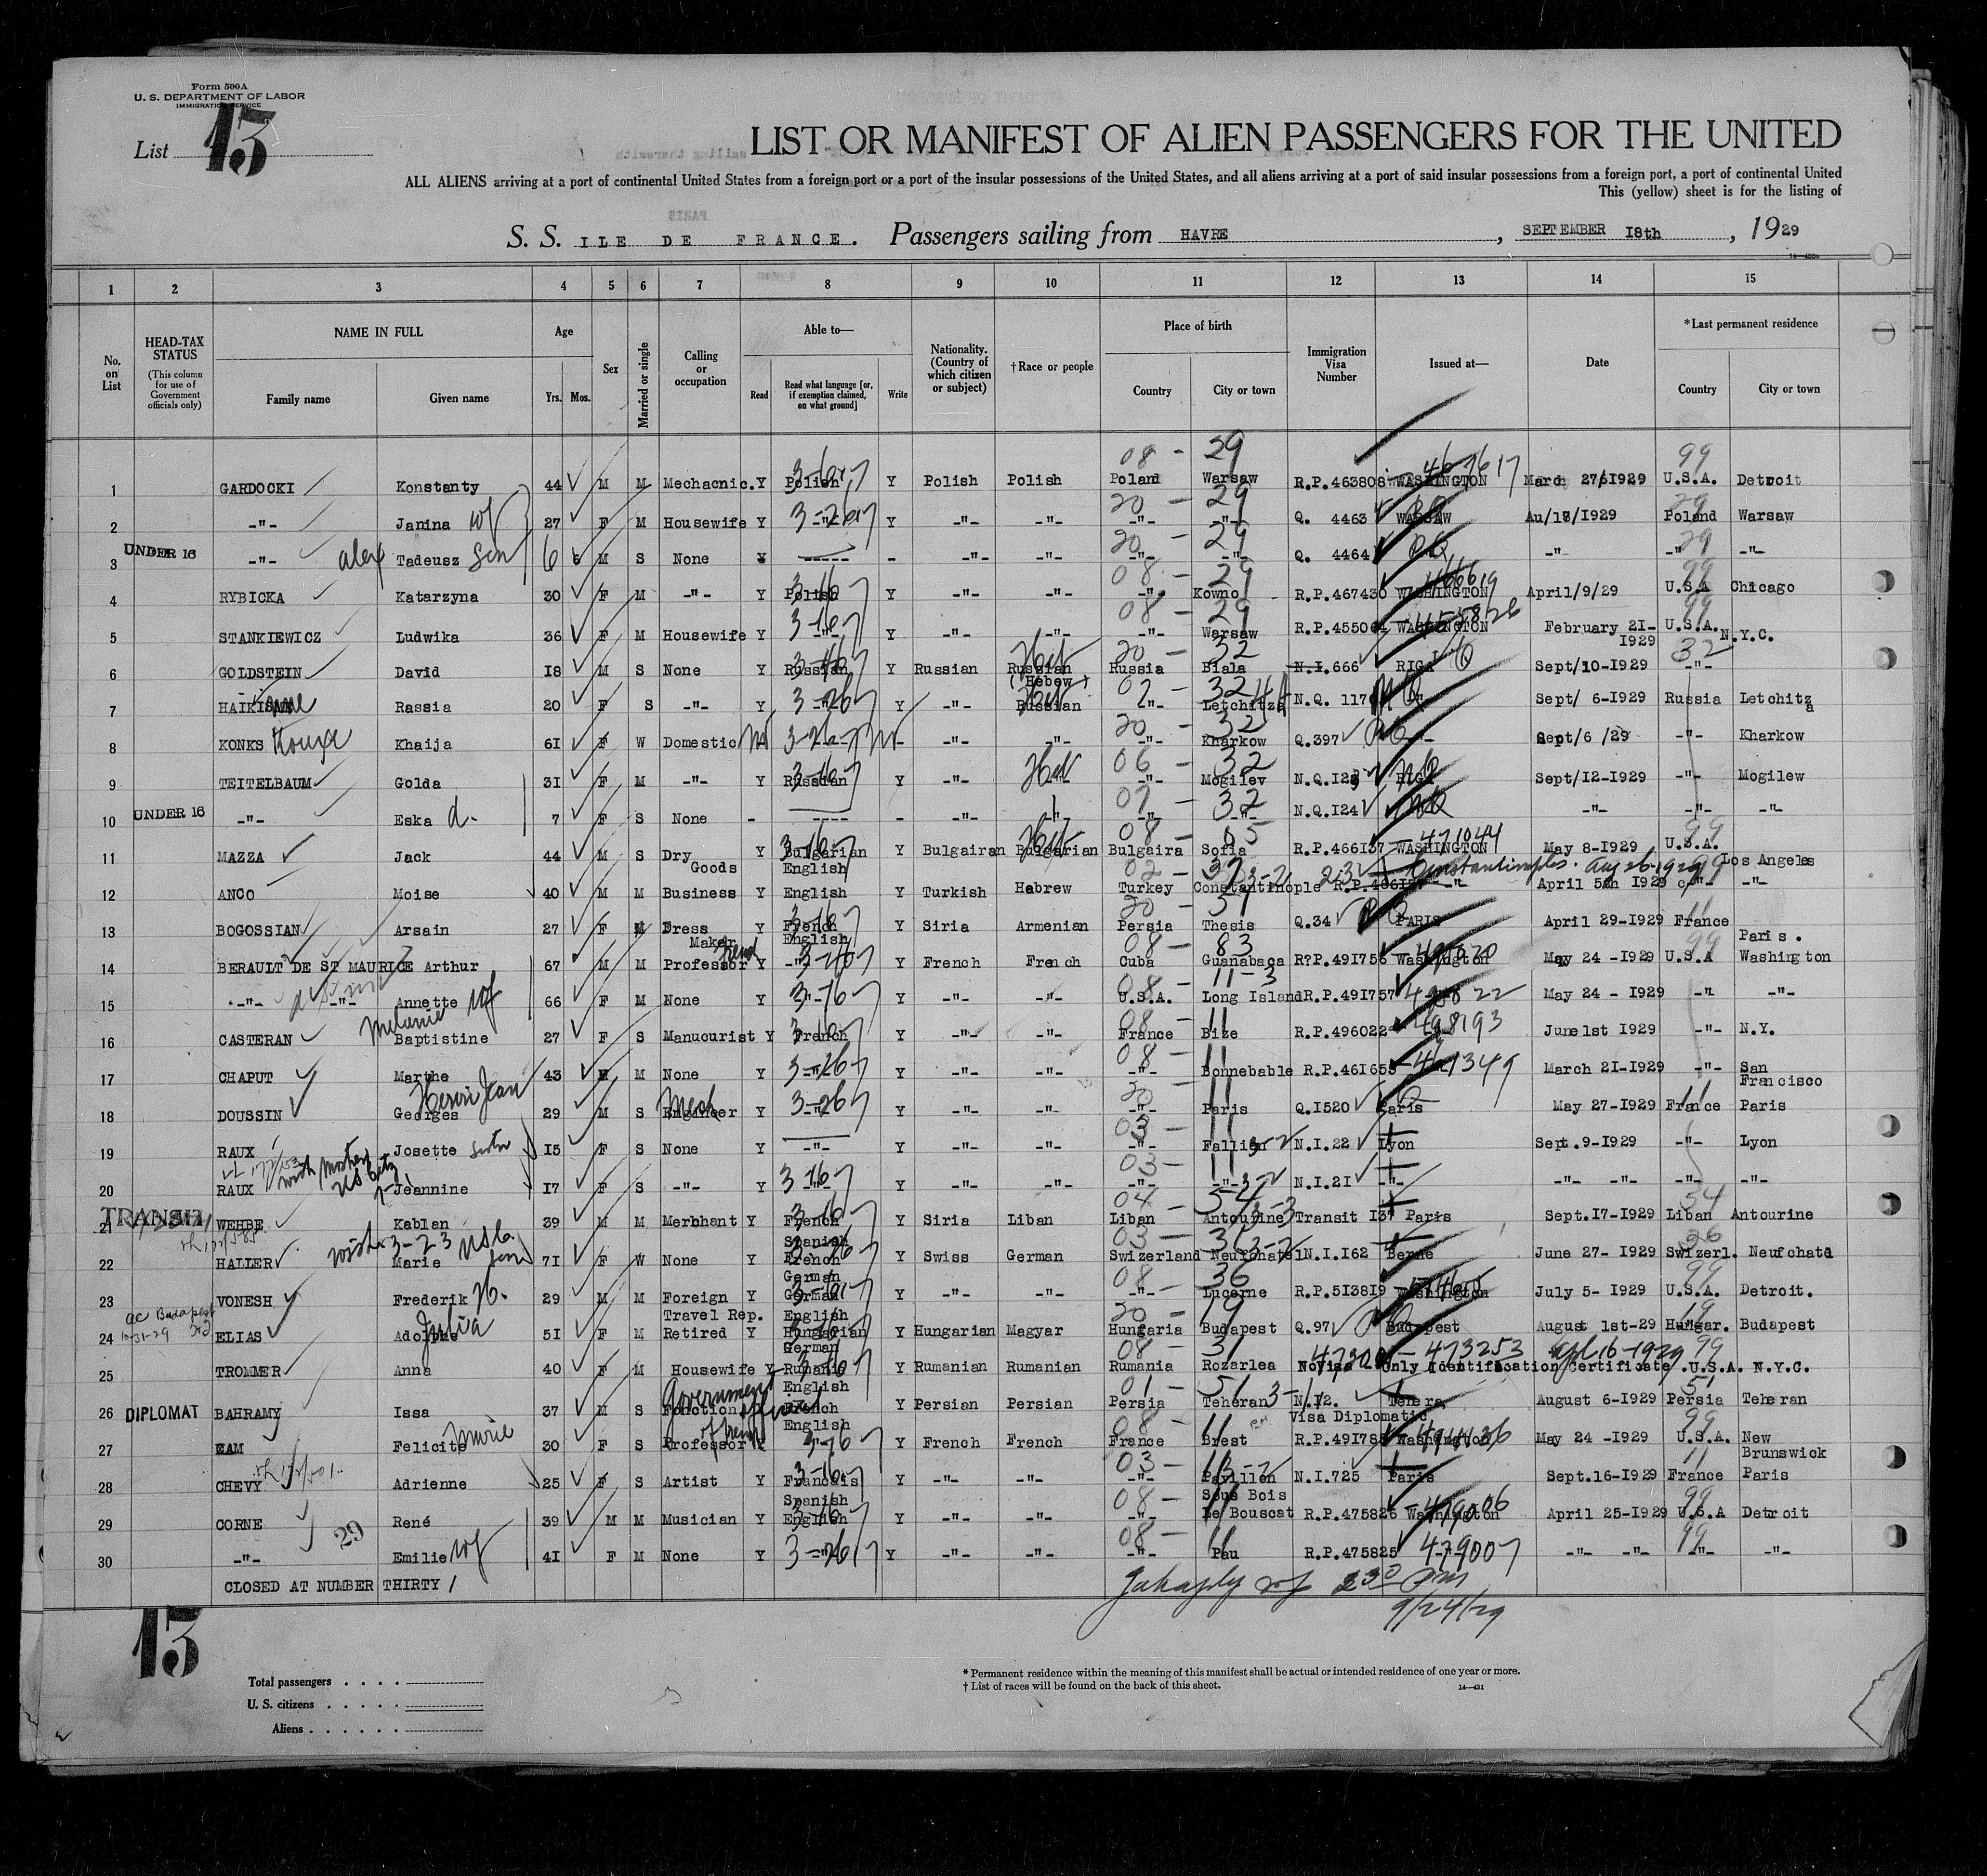 Form 500A
U. S. DEPARTMENT OF LABOR
IMMIGRATION SERVICE
List 13
LIST OR MANIFEST OF ALIEN PASSENGERS FOR THE UNITED
ALL ALIENS arriving at a port of continental United States from a foreign port or a port of the insular possessions of the United States, and all aliens arriving at a port of said insular possessions from a foreign port, a port of continental United
This (yellow) sheet is for the listing of
S. S. ILE DE FRANCE. Passengers sailing from HAVRE, SEPTEMBER I8th, 1929
1 2 3 4 5 6 7 8 9 10 11 12 13 14 15
No. on List
HEAD-TAX STATUS (This column for use of Government officials only)
NAME IN FULL Family name Given name
Age Yrs. Mos.
Sex
Married or single
Calling or occupation
Able to— Read Read what language [or, if exemption claimed, on what ground] Write
Nationality. (Country of which citizen or subject)
† Race or people
Place of birth Country City or town
Immigration Visa Number
Issued at—
Date
*Last permanent residence Country City or town
1 GARDOCKI Konstanty 44 M M Mechacnic. Y Polish Y Polish Polish Poland Warsaw R.P.463808 WASHINGTON March 27/1929 U.S.A. Detroit
2 -"- Janina wf 27 F M Housewife Y -"- Y -"- -"- -"- -"- Q. 4463 WARSAW Au/13/1929 Poland Warsaw
3 UNDER 16 -"- Alex Tadeusz Son 6 6 M S None ----- - -"- -"- -"- -"- Q. 4464 -"- -"- -"-
4 RYBICKA Katarzyna 30 F M -"- Y Polish Y -"- -"- -"- Kowno R.P.467430 WASHINGTON April/9/29 U.S.A Chicago
5 STANKIEWICZ Ludwika 36 F M Housewife Y -"- Y -"- -"- -"- Warsaw R.P.455064 WASHINGTON February 2I-I929 U.S.A. N.Y.C.
6 GOLDSTEIN David I8 M S None Y Russian Y Russian Russian (Hebew) Russia Biala N.I.666 RIGA Sept/10-I929 -"-
7 Rassia 20 F S -"- Y -"- Y -"- Russian -"- Letchitza N.Q. 117 Sept/ 6-I929 Russia Letchitza
8 KONKS Khaija 6I F W Domestic -"- -"- -"- Kharkow Q.397 -"- Sept/6 /29 -"- Kharkow
9 TEITELBAUM Golda 3I F M -"- Y Russian Y -"- Heb -"- Mogilev N.Q.I23 RIGA Sept/I2-I929 -"- Mogilew
10 UNDER 16 -"- Eska d. 7 F S None - ---- - -"- -"- -"- N.Q.I24 -"- -"- -"-
11 MAZZA Jack 44 M S Dry Goods Y Bulgarian English Y Bulgairan Bulgarian Bulgaira Sofia R.P.466I37 WASHINGTON 471044 May 8-I929 U.S.A. Los Angeles
12 ANCO Moise 40 M M Business Y English Y Turkish Hebrew Turkey Constantinople Constantinople. Aug 26-1929 April 5th I929 -"- -"-
13 BOGOSSIAN Arsain 27 F M Dress Maker Y French English Y Siria Armenian Persia Thesis Q.34 PARIS April 29-I929 France Paris.
14 BERAULT DE ST MAURICE Arthur 67 M M Professor Y -"- Y French French Cuba Guanabaca R?P.49I756 Washington May 24 -I929 U.S.A Washington
15 -"- -"- Annette wf 66 F M None Y -"- Y -"- -"- U.S.A. Long Island R.P.49I757 May 24 - I929 -"- -"-
16 CASTERAN Melanie Baptistine 27 F S Manucurist Y French Y -"- -"- France Bize R.P.496022 498193 June 1st I929 -"- N.Y.
17 CHAPUT Marthe 43 M None Y -"- Y -"- -"- -"- Bonnebable R.P.46I655 461349 March 2I-I929 -"- San Francisco
18 DOUSSIN Henri Jean Georges 29 M S Engineer Y -"- Y -"- -"- -"- Paris Q.I520 Paris May 27-I929 France Paris
19 RAUX Josette sister I5 F S None Y -"- Y -"- -"- -"- N.I.22 Lyon Sept.9-I929 -"- Lyon
20 RAUX with mother Jeannine I7 F S -"- Y -"- Y -"- -"- -"- -"- N.I.2I -"- -"- -"- -"- -"-
21 TRANSIT WEHBE Kablan 39 M M Merchant Y French Spanish Y Siria Liban Liban Antourine Transit I37 Paris Sept.I7-I929 Liban Antourine
22 HALLER Marie 7I F W None Y French German Y Swiss German Swizerland Neufchatel N.I.I62 Berne June 27- I929 Swizerl. Neufchatel
23 VONESH Frederik H. 29 M M Foreign Travel Rep. Y German English Y -"- -"- -"- Lucerne R.P.5I38I9 Washington July 5- I929 U.S.A. Detroit.
24 ELIAS Julia 5I F M Retired Y Hungarian German Y Hungarian Magyar Hungaria Budapest Q.97 Budapest August 1st-29 Hungar. Budapest
25 TROMMER Anna 40 F M Housewife Y Rumanian English Y Rumanian Rumanian Rumania Rozarlea No Visa Only Identification Certificate. 473253 Apl 16-1929 U.S.A. N.Y.C.
26 DIPLOMAT BAHRAMY Issa 37 M S Government French English Y Persian Persian Persia Teheran N.I2. Visa Diplomatic August 6-I929 Persia Teheran
27 Felicite Marie 30 F S Professor Y -"- Y French French France Brest R.P.49I785 Washington May 24 -I929 U.S.A. New Brunswick
28 CHEVY Adrienne 25 F S Artist Y Francais Spanish Y -"- -"- -"- Pavillon Sous Bois N.I.725 Paris Sept.I6-I929 France Paris
29 CORNE René 39 M M Musician Y English Y -"- -"- -"- Le Bouscat R.P.475826 Washington 479006 April 25-I929 U.S.A Detroit
30 -"- Emilie wf 4I F M None Y -"- Y -"- -"- -"- Pau R.P.475825 479007 -"- -"- -"- -"-
29
CLOSED AT NUMBER THIRTY
9/24/29
13
Total passengers
U. S. citizens
Aliens
* Permanent residence within the meaning of this manifest shall be actual or intended residence of one year or more.
† List of races will be found on the back of this sheet.
14—431